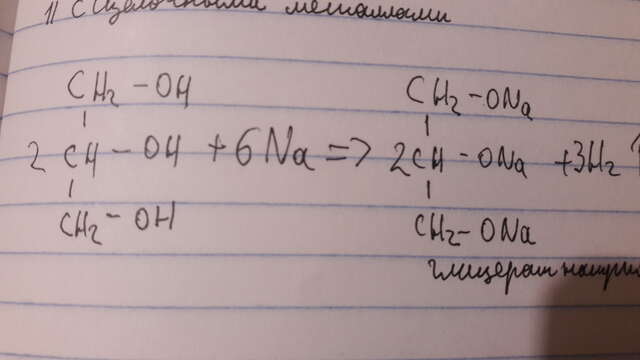 1) С щелочными металлами
CH2 - OH CH2 - ONa
2 CH - OH + 6Na => 2 CH - ONa + 3H2↑
CH2 - OH CH2 - ONa
глицерат натрия